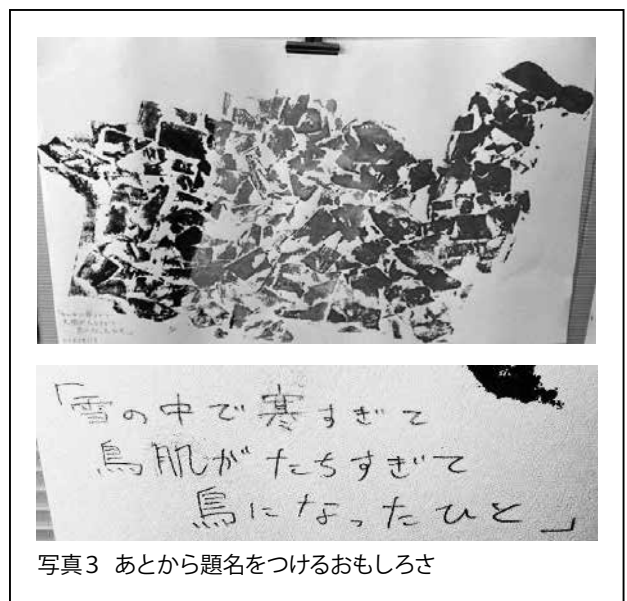 「雪の中で寒すぎて
鳥肌がたちすぎて
鳥になったひと」
写真3 あとから題名をつけるおもしろさ